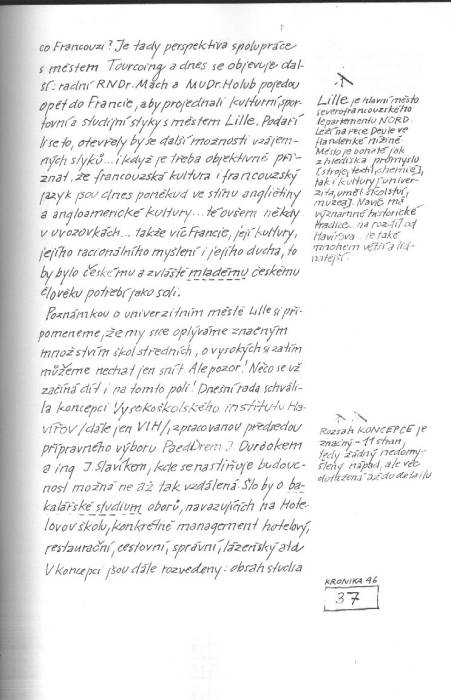 co Francouzi? Je tady perspektiva spolupráce
s městem Tourcoing a dnes se objevuje dal-
ší: radní RNDr. Mach a MuDr. Holub pojedou
opět do Francie, aby projednali kulturní, spor-
tovní a studijní styky s městem Lille. Podaří
li se to, otevřely by se další možnosti vzájem-
ných styků... i když je třeba objektivně při-
znat, že francouzská kultura i francouzský
jazyk jsou dnes poněkud ve stínu angličtiny
a angloamerické kultury... té ovšem někdy
v uvozovkách... takže víc Francie, její kultury,
jejího racionálního myšlení i jejího ducha, to
by bylo českému a zvláště mladému českému
člověku potřebí jako soli.
Poznámkou o univerzitním městě Lille si při-
pomeneme, že my sice oplýváme značným
množstvím škol středních, o vysokých si zatím
můžeme nechat jen snít. Ale pozor! Něco se už
začíná dít i na tomto poli! Dnešní rada schváli-
la koncepci Vysokoškolského institutu Ha-
vířov /dále jen VIH/, zpracovanou předsedou
přípravného výboru PaedDrem J. Durčokem
a ing. J. Slavíkem, kde se nastiňuje budouc-
nost možná ne až tak vzdálená. Šlo by o ba-
kalářské studium oborů, navazujících na Hote-
lovou školu, konkrétně management hotelový,
restaurační, cestovní, správní, lázeňský atd.
V koncepci jsou dále rozvedeny: obsah studia
Lille je hlavní město
severofrancouzského
departementu NORD.
Leží na řece Deule ve
flanderské nížině.
Město je bohaté jak
z hlediska průmyslu
[stroje, textil, chemie],
tak i kultury [univer-
zita, uměl. školství,
muzea]. Navíc má
významné historické
tradice... na rozdíl od
Havířova... je také
mnohem větší a lid-
natější.
Rozsah KONCEPCE je
značný - 11 stran,
tedy žádný nedomy-
šlený nápad, ale věc
dotažená až do detailu
KRONIKA 96
37